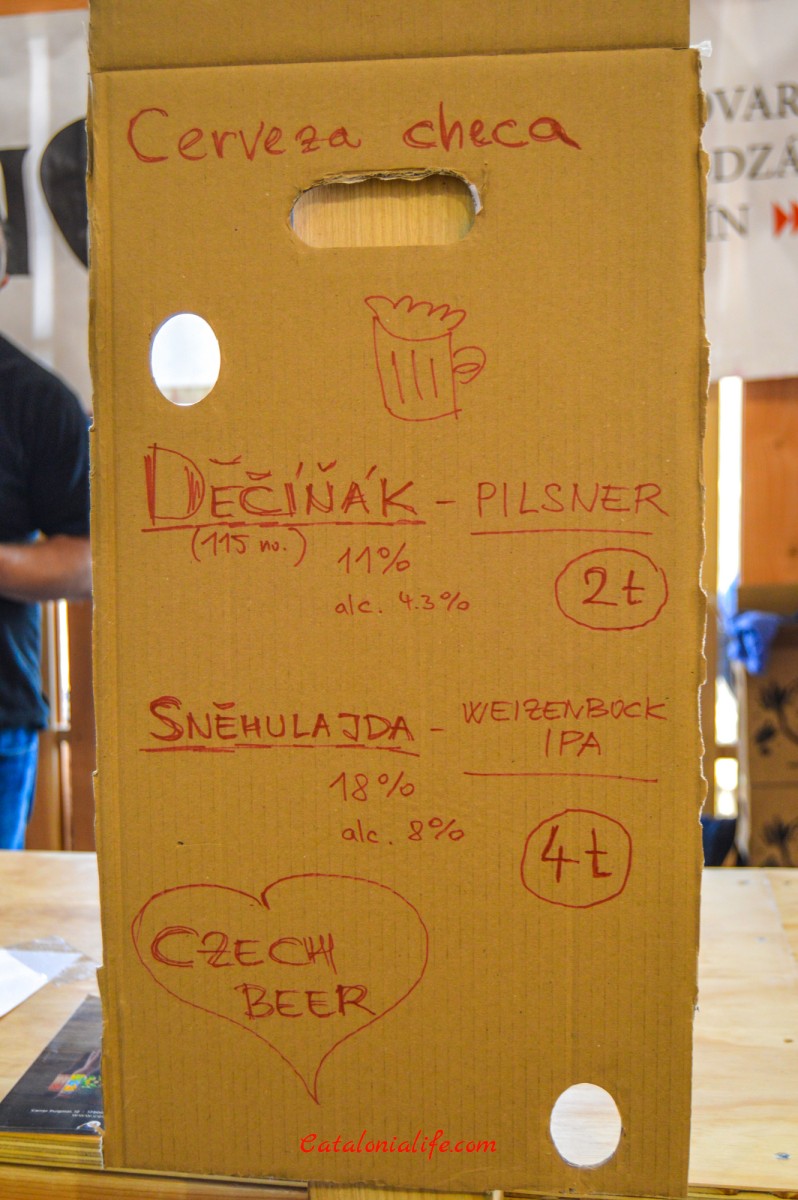 Cerveza checa
DĚČÍŇÁK - PILSNER
(115 no.)
11%
alc. 4.3%
2t
SNĚHULAJDA - WEIZENBOCK
IPA
18%
alc. 8%
4t
CZECH
BEER
OVAR
DZÁ
ÍN
Catalonialife.com